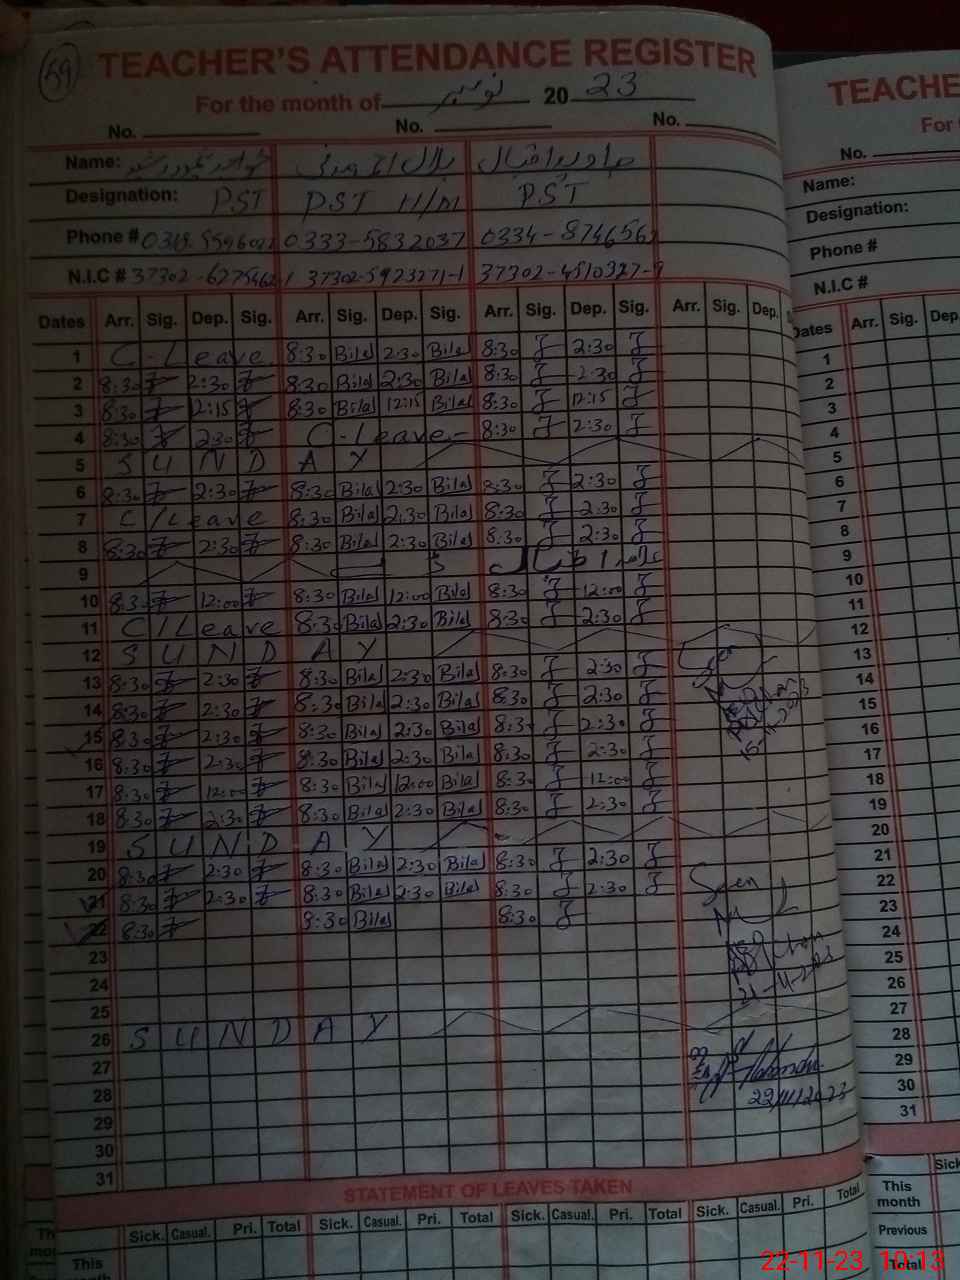 59
TEACHER'S ATTENDANCE REGISTER
For the month of نومبر 20 23
No. No. No.
Name: بلال احمد جاوید اقبال
Designation: PST PST H/M PST
Phone # 0333-5832037 0334-874656
N.I.C # 37302-6275462-1 37302-5923271-1 37302-4510327-9
Dates Arr. Sig. Dep. Sig. Arr. Sig. Dep. Sig. Arr. Sig. Dep. Sig. Arr. Sig. Dep.
1 C-Leave 8:30 Bilal 2:30 Bilal 8:30 J 2:30 J
2 8:30 2:30 8:30 Bilal 2:30 Bilal 8:30 J 2:30 J
3 8:30 12:15 8:30 Bilal 12:15 Bilal 8:30 J 12:15 J
4 8:30 2:30 C-Leave- 8:30 J 2:30 J
5 SUNDAY
6 8:30 2:30 8:30 Bilal 2:30 Bilal 8:30 J 2:30 J
7 C/Leave 8:30 Bilal 2:30 Bilal 8:30 J 2:30 J
8 8:30 2:30 8:30 Bilal 2:30 Bilal 8:30 J 2:30 J
9 علامہ اقبال ڈے
10 8:30 12:00 8:30 Bilal 12:00 Bilal 8:30 J 12:00 J
11 C/Leave 8:30 Bilal 2:30 Bilal 8:30 J 2:30 J
12 SUNDAY
13 8:30 2:30 8:30 Bilal 2:30 Bilal 8:30 J 2:30 J
14 8:30 2:30 8:30 Bilal 2:30 Bilal 8:30 J 2:30 J
15 8:30 2:30 8:30 Bilal 2:30 Bilal 8:30 J 2:30 J
16 8:30 2:30 8:30 Bilal 2:30 Bilal 8:30 J 2:30 J
17 8:30 12:00 8:30 Bilal 12:00 Bilal 8:30 J 12:00 J
18 8:30 2:30 8:30 Bilal 2:30 Bilal 8:30 J 2:30 J
19 SUNDAY
20 8:30 2:30 8:30 Bilal 2:30 Bilal 8:30 J 2:30 J
21 8:30 2:30 8:30 Bilal 2:30 Bilal 8:30 J 2:30 J
22 8:30 8:30 Bilal 8:30 J
23
24
25
26 SUNDAY
27
28
29
30
31
Seen
15-11-2023
Seen
21-11-2023
22/11/2023
STATEMENT OF LEAVES TAKEN
Sick. Casual. Pri. Total Sick. Casual. Pri. Total Sick. Casual. Pri. Total Sick. Casual. Pri. Total
This month
TEACHE
For
No.
Name:
Designation:
Phone #
N.I.C #
Dates Arr. Sig. Dep
1
2
3
4
5
6
7
8
9
10
11
12
13
14
15
16
17
18
19
20
21
22
23
24
25
26
27
28
29
30
31
Sick
This month
Previous
Total
22-11-23 10:13